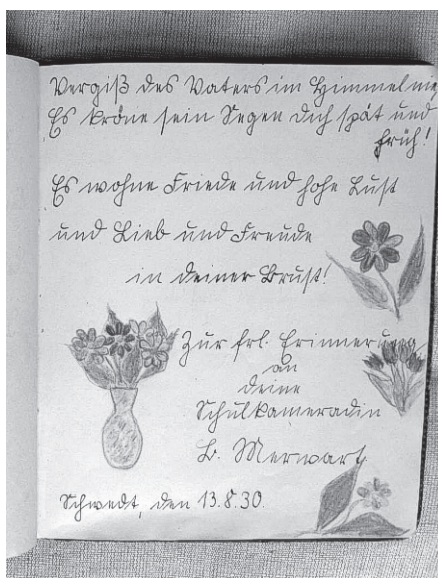 Vergiß des Vaters im Himmel nie
Es kröne sein Segen Dich spät und
früh!
Es wohne Friede und hohe Lust
und Lieb und Freude
in deiner Brust!
Zur frl. Erinnerung
an
deine
Schulkameradin
L. Merwart
Schwedt, den 13.8.30.